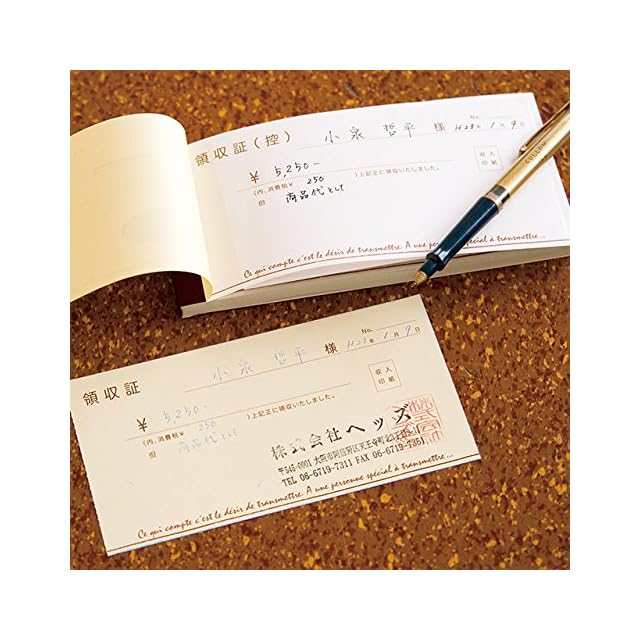 No.
領収証(控) 小泉 哲平 様 H25年 1月 9日
¥ 5,250-
(内、消費税¥ 250 )上記正に領収いたしました。
但 商品代として
収入
印紙
Ce qui compte c'est le désir de transmettre. A une personne spécial à transmettre...
CULLOM
No.
領収証 小泉 哲平 様 H25年 1月 9日
¥ 5,250-
(内、消費税¥ 250 )上記正に領収いたしました。
但 商品代として
収入
印紙
株式会社ヘッズ
〒545-0001 大阪市阿倍野区天王寺町北
TEL 06-6719-7311 FAX 06-6719-7351
Ce qui compte c'est le désir de transmettre. A une personne spécial à transmettre...